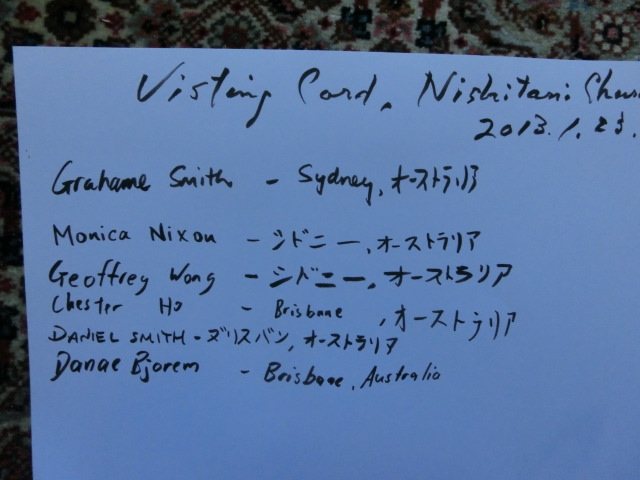 Visting Card, Nishitani
2013.1.23.
Grahame Smith - Sydney, オーストラリア
Monica Nixon - シドニー, オーストラリア
Geoffrey Wong - シドニー, オーストラリア
Chester Ho - Brisbane, オーストラリア
DANIEL SMITH - ズリスバン, オーストラリア
Danae Bjorem - Brisbane, Australia